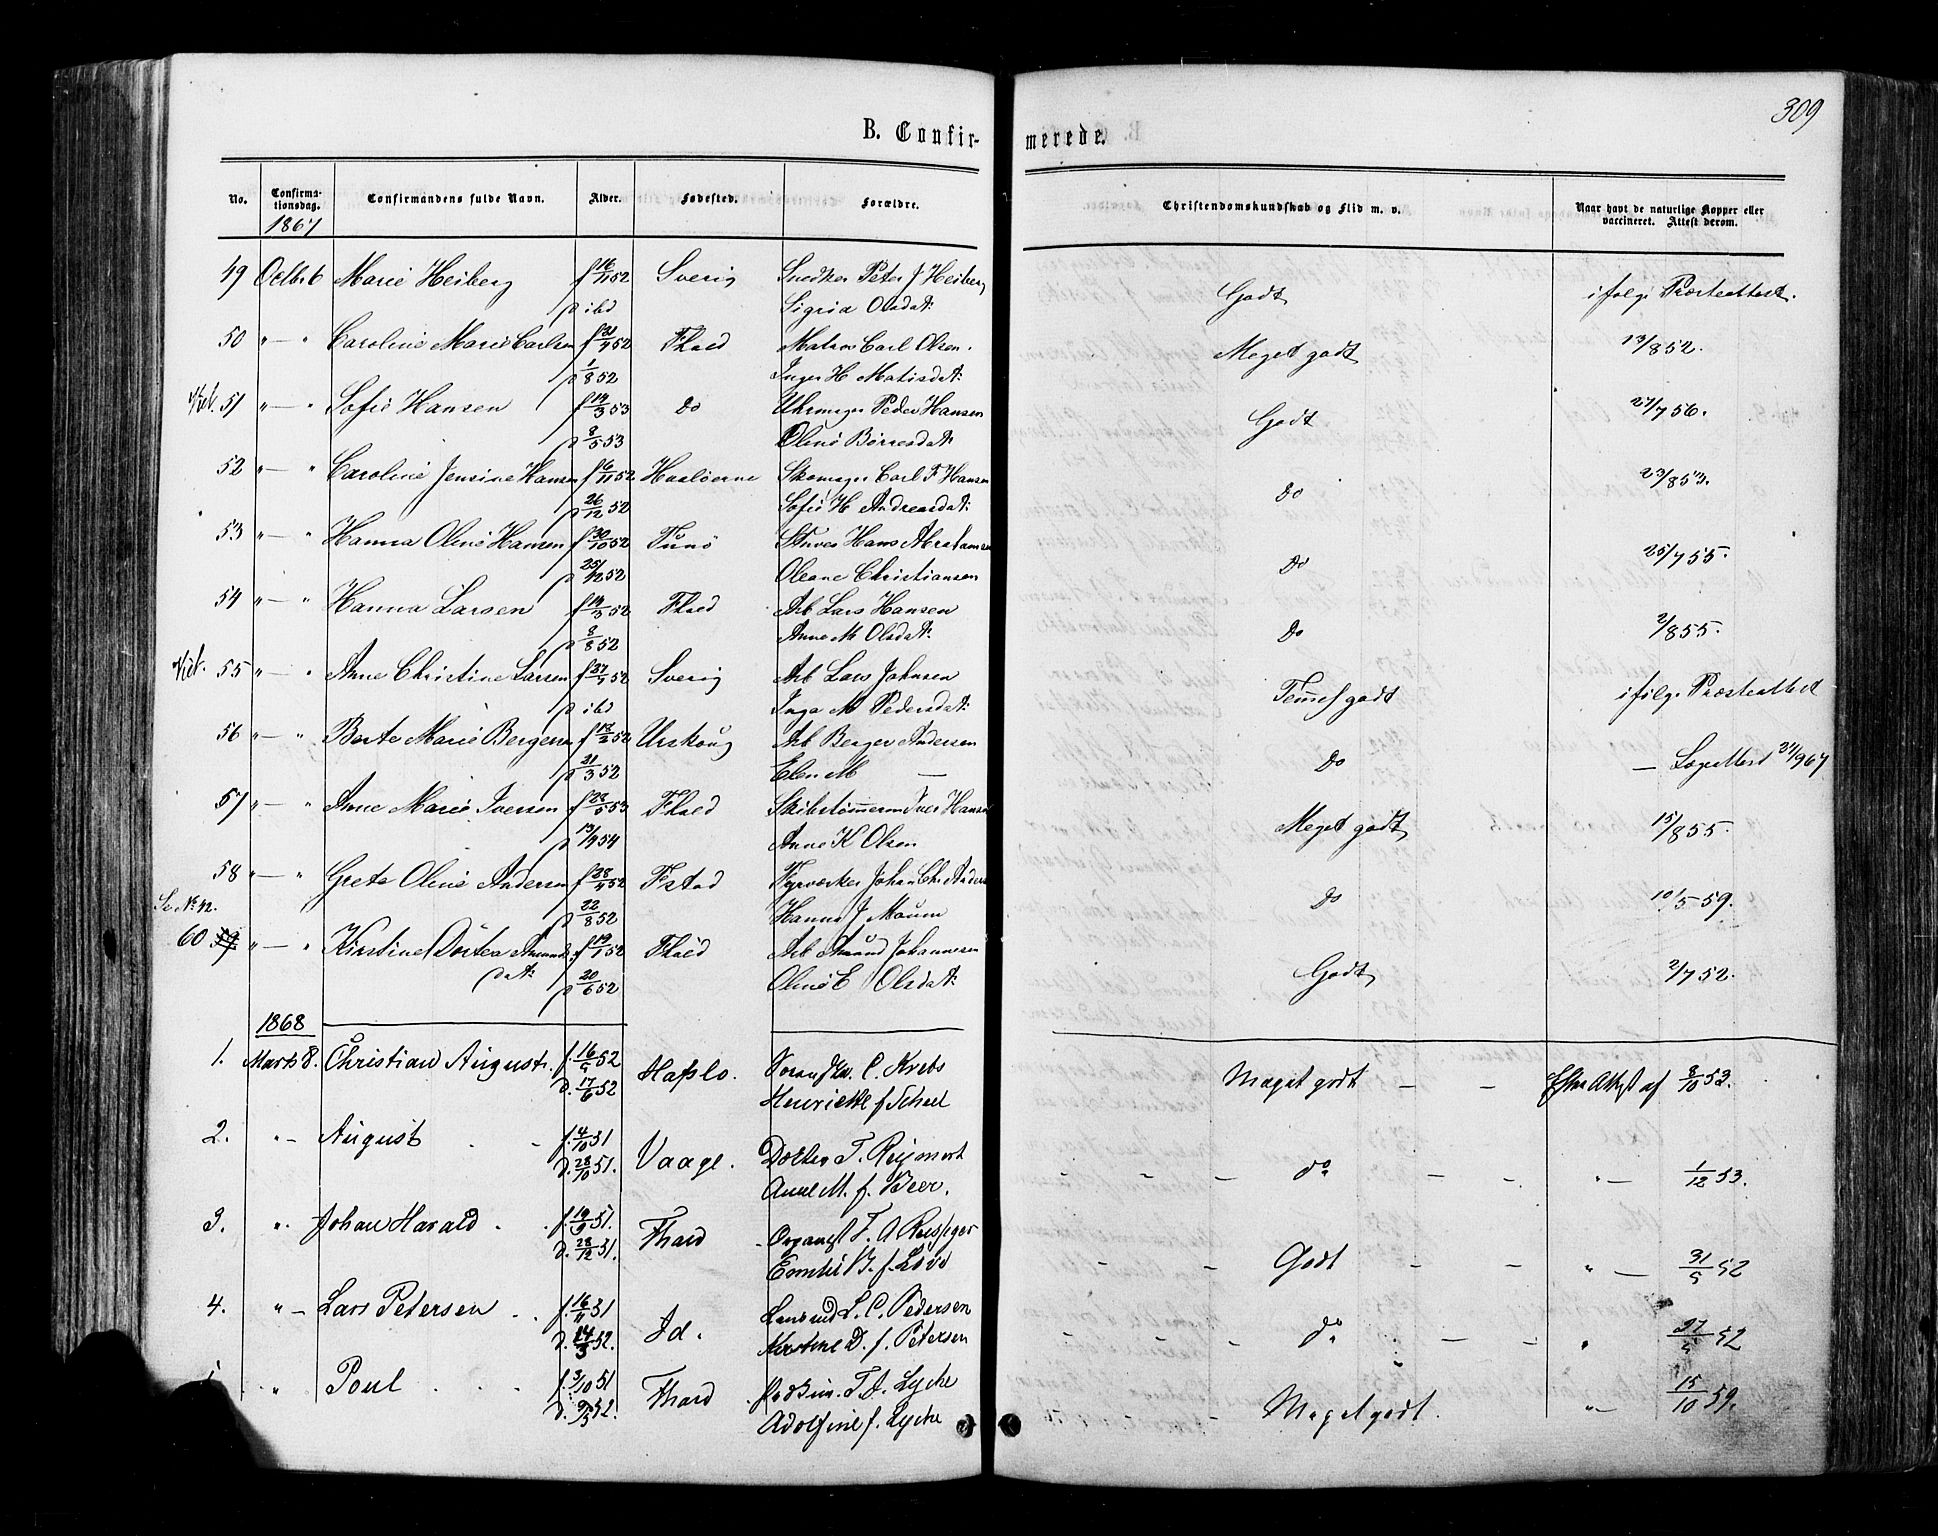 309
B. Confirmerede.
No. Confirmationsdag. Confirmandens fulde Navn. Alder. Fødested. Forældre. Christendomskundskab og Flid m. v. Naar havt de naturlige Kopper eller vaccineret. Attest derom.
1867
49 Octbr 6 Marie Heiberg f 16/11 52 Sverig Snedker Peter J Heiberg Godt ifølge Præsteattest.
p ibd Sigria Olsdat:
50 " — " Caroline Marie Carlsen 52 Fhald Matros Carl Olsen. Meget godt 13/8 52.
p 1/8 52 Inger H Matisdat:
51 " — " Sofie Hansen f 14/3 53 do Uhrmager Peder Hansen Godt 27/7 56.
p 8/5 53 Oline Børresdat:
52 " — " Caroline Jensine Hansen f 6/11 52 Hvaløerne Skomager Carl F Hansen do 23/8 53.
p 26/12 52 Sofie H Andreasdat:
53 " — " Hanna Oline Hansen f 30/10 52 Tunø Stuver Hans Abrahamsen do 25/7 55.
p 25/12 52 Oleane Christiansen
54 " — " Hanna Larsen f 14/3 52 Fhald Arb Lars Hansen do 2/8 55.
p 8/8 52 Anne M Olsdat:
55 " — " Anne Christine Larsen 52 Sverig Arb Lars Johnsen Temel godt ifølge Præsteattest
p ibd Inga M Pedersdat:
56 " — " Berte Marie Bergersen f 12/2 52 Urskoug Arb Berger Andersen do — Lægeattest 24/9 67
p 21/3 52 Elen M —
57 " — " Anne Marie Iversen f 28/5 53 Fhald Skibstømmerm Iver Hansen Meget godt 15/8 55.
54 Anne K Olsen
58 " — " Grete Oline Andersen f 28/4 52 Fstad Fyrværker Johan Chr Anders do 10/5 59.
p 22/8 52 Hanna J Maum
Se No 42.
60 59 " — " Kirstine Dortea Amunds f 19/1 52 Fhald Arb Amund Johannesen Godt 2/7 52.
dat: p 20/6 52 Oline E Olsdat:
1868
1. Marts 8. Christian August. f. 16/5 52 Hafslo. C. Krebs Meget godt — — Efter Attest af 8/10 53.
d. 17/6 52 Henriette f Scheel
2. " — August f. 4/10 51 Vaage. Doktor T. Reymert do — — " — 1/12 53.
d. 28/10 51. Anne M. f. Beer.
3. " Johan Harald f. 19/9 51. Fhald Organist F. A Reissiger Godt — — " — 31/5 52
d. 28/12 51. Emilie f. Lövo
4. " — Lars Petersen f. 16/11 51 Id. L. C. Pedersen do — — " 27/5 52
d. 14/3 52. Kirstine D. f. Petersen
" Poul f. 3/10 51 Fhald T. J. Lyche Meget godt. " — 15/10 59.
52. Adolfine f. Lyche